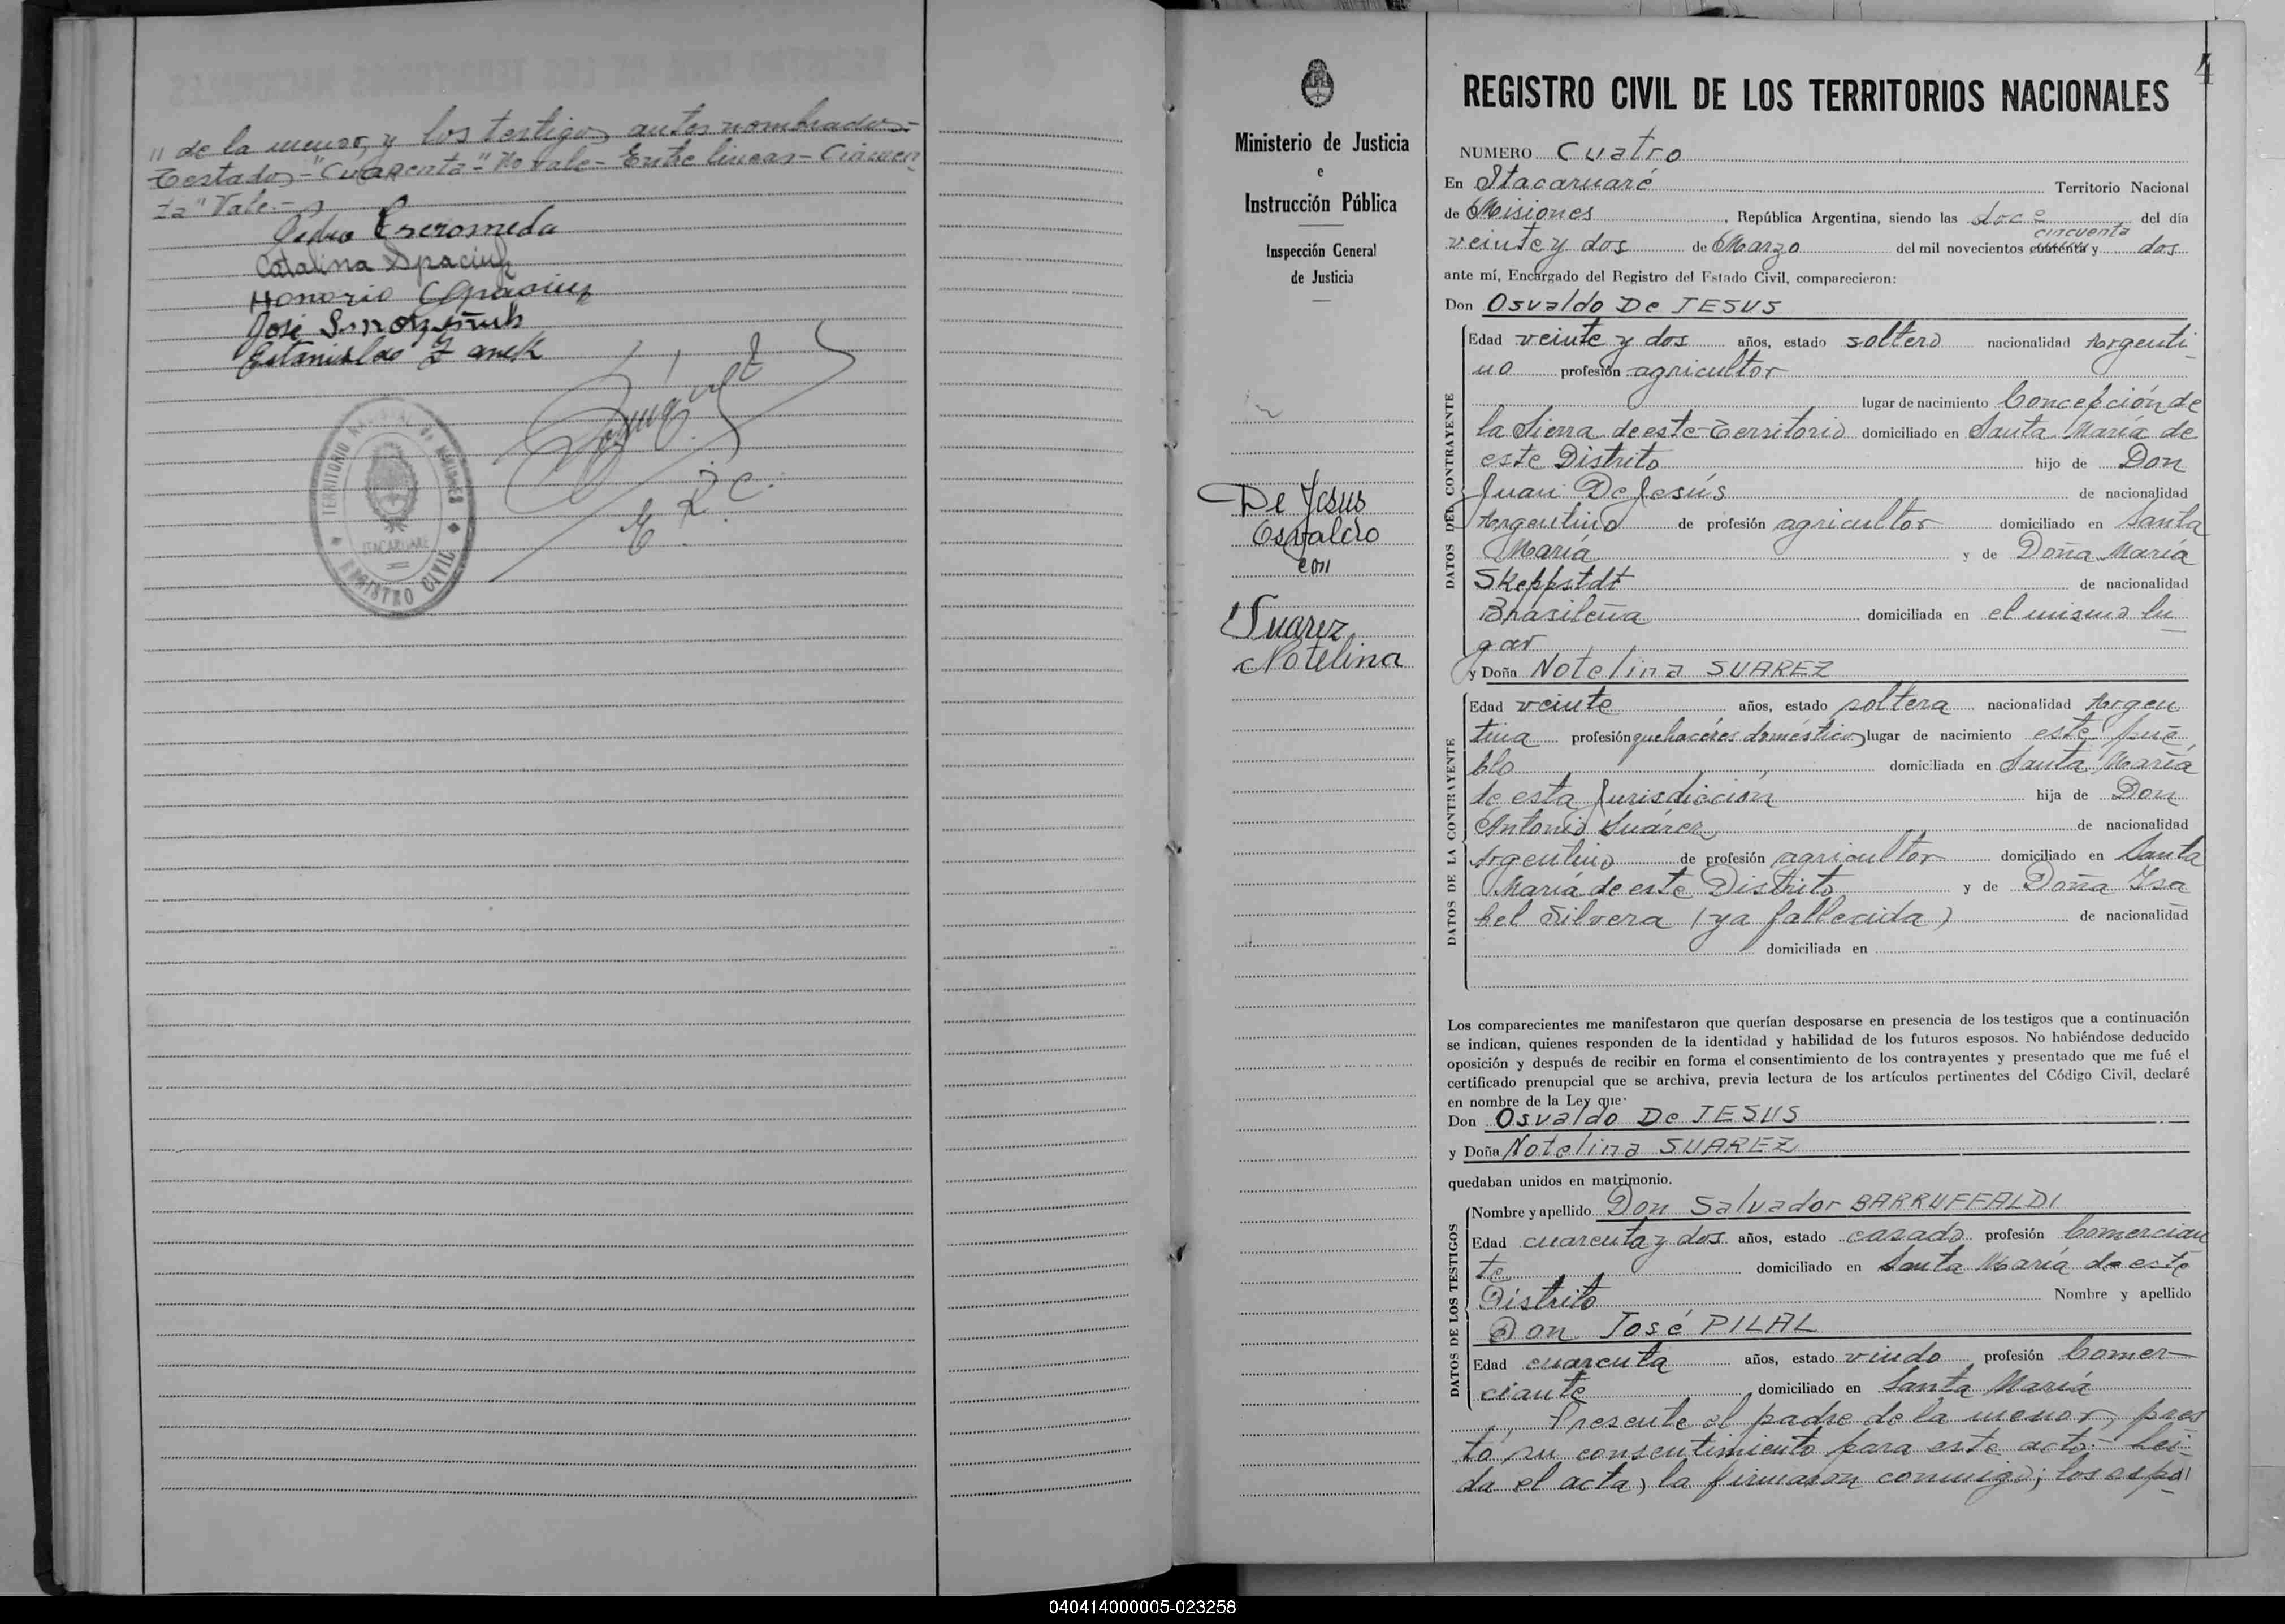 " de la menor, y los testigos antes nombrados-
Testado-"Cuarenta"-No vale-Entre lineas-Cincuen
ta" Vale.-
Pedro
Catalina Spaciuk
Honorio Spaciuk
José
Estanislao Zanek
TERRITORIO NACIONAL de MISIONES
ITACARUARE
REGISTRO CIVIL
E. R. C.
4
Ministerio de Justicia
e
Instrucción Pública
Inspección General
de Justicia
De Jesus
Osvaldo
con
Suarez
Notelina
REGISTRO CIVIL DE LOS TERRITORIOS NACIONALES
NUMERO Cuatro
En Itacaruaré Territorio Nacional
de Misiones, República Argentina, siendo las doce del día
cincuenta
veinte y dos de Marzo del mil novecientos cuarenta y dos
ante mí, Encargado del Registro del Estado Civil, comparecieron:
Don Osvaldo De JESUS
DATOS DEL CONTRAYENTE
Edad veinte y dos años, estado soltero nacionalidad Argenti
no profesión agricultor
lugar de nacimiento Concepción de
la Sierra de este Territorio domiciliado en Santa María de
este Distrito hijo de Don
Juan De Jesús de nacionalidad
Argentino de profesión agricultor domiciliado en Santa
María y de Doña María
Skeppstdt de nacionalidad
Brasileña domiciliada en el mismo lu
gar
y Doña Notelina SUAREZ
DATOS DE LA CONTRAYENTE
Edad veinte años, estado soltera nacionalidad Argen
tina profesión quehaceres domésticos lugar de nacimiento este pue
blo domiciliada en Santa María
de esta Jurisdicción hija de Don
Antonio Suárez de nacionalidad
Argentino de profesión agricultor domiciliado en Santa
María de este Distrito y de Doña Isa
bel Silvera (ya fallecida) de nacionalidad
domiciliada en
Los comparecientes me manifestaron que querían desposarse en presencia de los testigos que a continuación
se indican, quienes responden de la identidad y habilidad de los futuros esposos. No habiéndose deducido
oposición y después de recibir en forma el consentimiento de los contrayentes y presentado que me fué el
certificado prenupcial que se archiva, previa lectura de los artículos pertinentes del Código Civil, declaré
en nombre de la Ley que:
Don Osvaldo De JESUS
y Doña Notelina SUAREZ
quedaban unidos en matrimonio.
DATOS DE LOS TESTIGOS
Nombre y apellido Don Salvador BARRUFFALDI
Edad cuarenta y dos años, estado casado profesión Comercian
te domiciliado en Santa María de este
Distrito Nombre y apellido
Don José PILAL
Edad cuarenta años, estado viudo profesión Comer-
ciante domiciliado en Santa María
Presente el padre de la menor, pres
tó su consentimiento para este acto.- Leí
da el acta, la firmaron conmigo; los espo
040414000005-023258